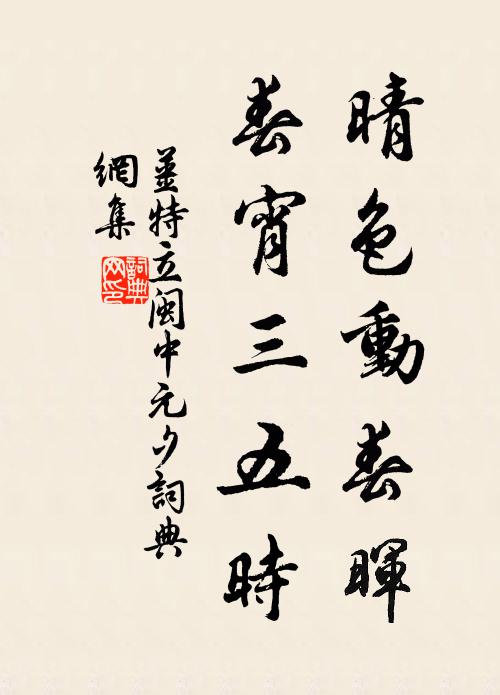 晴色動春暉
春宵三五時
姜特立閩中元夕詞典
網集
詞典網印